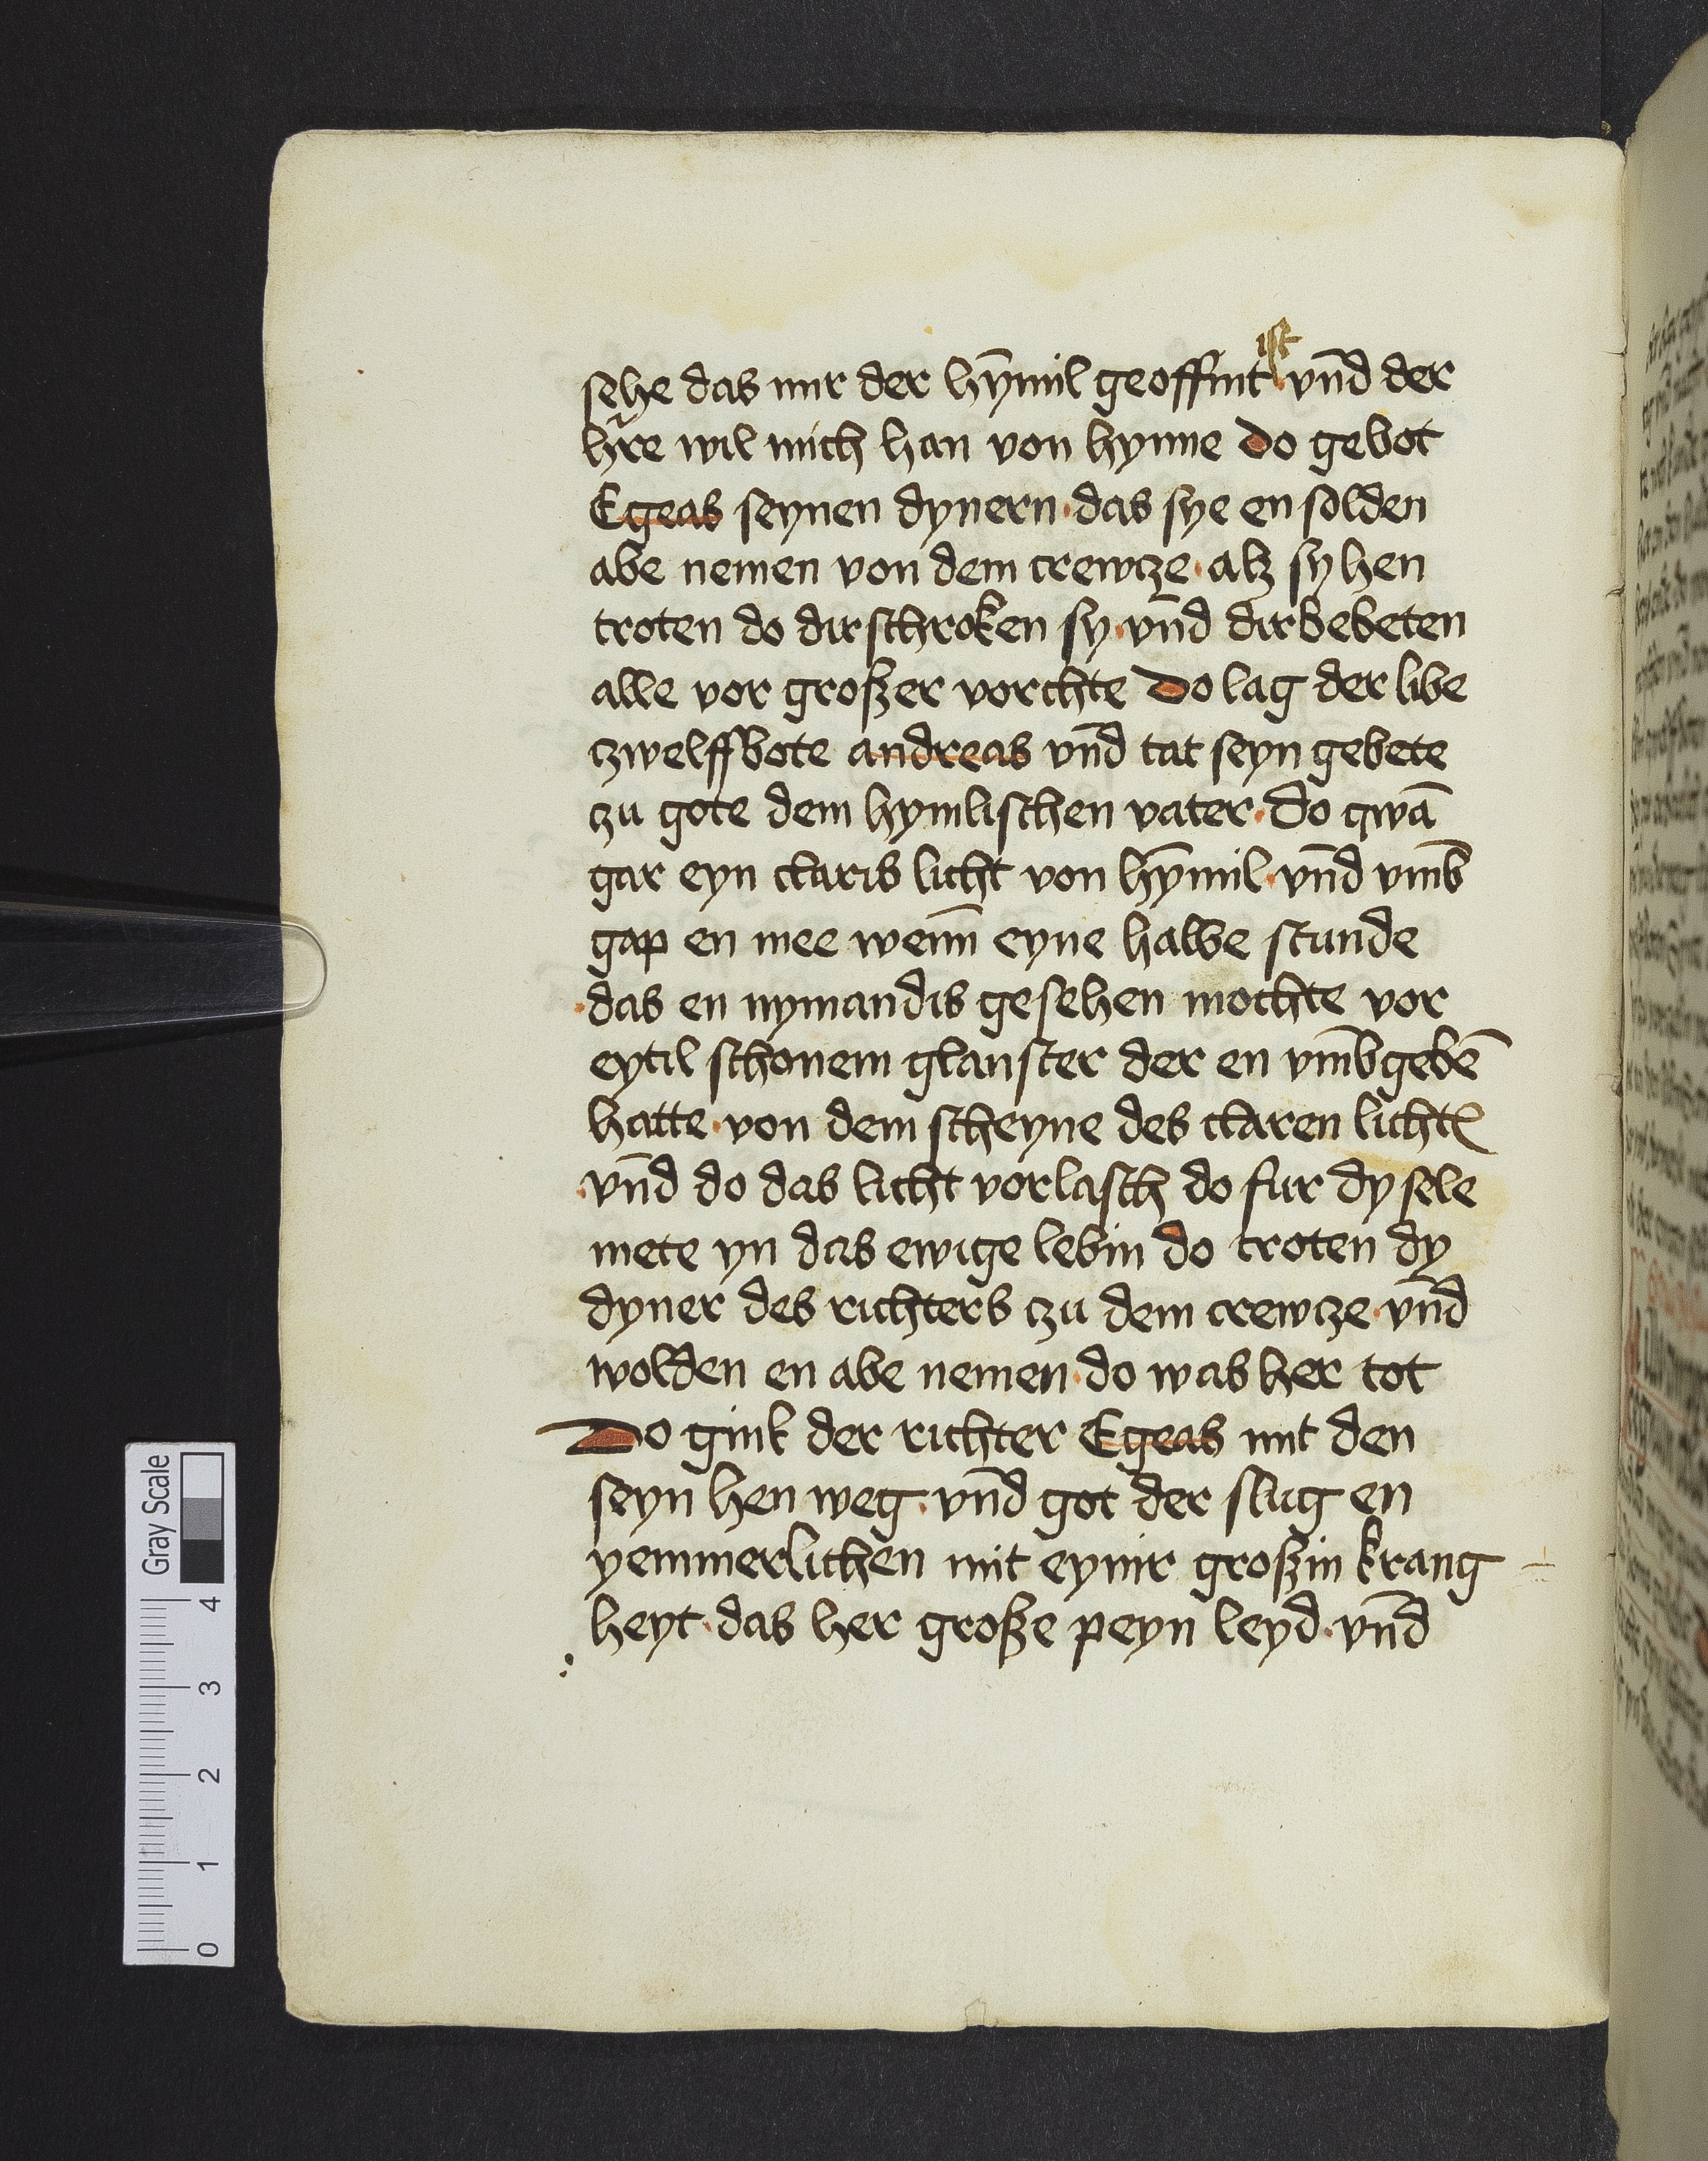 sehe das mir der hȳmil geoffint ist vn̄d der
hr̃e wil mich han von hynne Do gebot
Egeas seynen dynern · das sye en solden
abe nemen von dem crewcze · alz sy hen
troten do dirschroken sy · vn̄d dirbebeten
alle vor groszer vorchte Do lag der libe
czwelffbote andreas vn̄d tat seyn gebete
czu gote dem hymlischen vater · Do qwā
gar eyn claris licht von hȳmil · vn̄d vm̄b
gap en mee wenn̄ eyne halbe stunde
· das en nymandis gesehen mochte vor
eytil schonem glanster der en vm̄bgebē
hatte · von dem scheyne des claren lichtꝭ
· vn̄d do das licht vorlasch do fur dy sele
mete yn das ewige lebin do troten dy
dyner des richters czu dem crewcze · vn̄d
wolden en abe nemen · do was her tot
Do gink der richter Egeas mit den
seyn hen weg · vn̄d got der slug en
yemmerlichen mit eynir groszin krang
heyt · das her grosze peyn leyd · vn̄d
Gray Scale
4
3
2
1
0